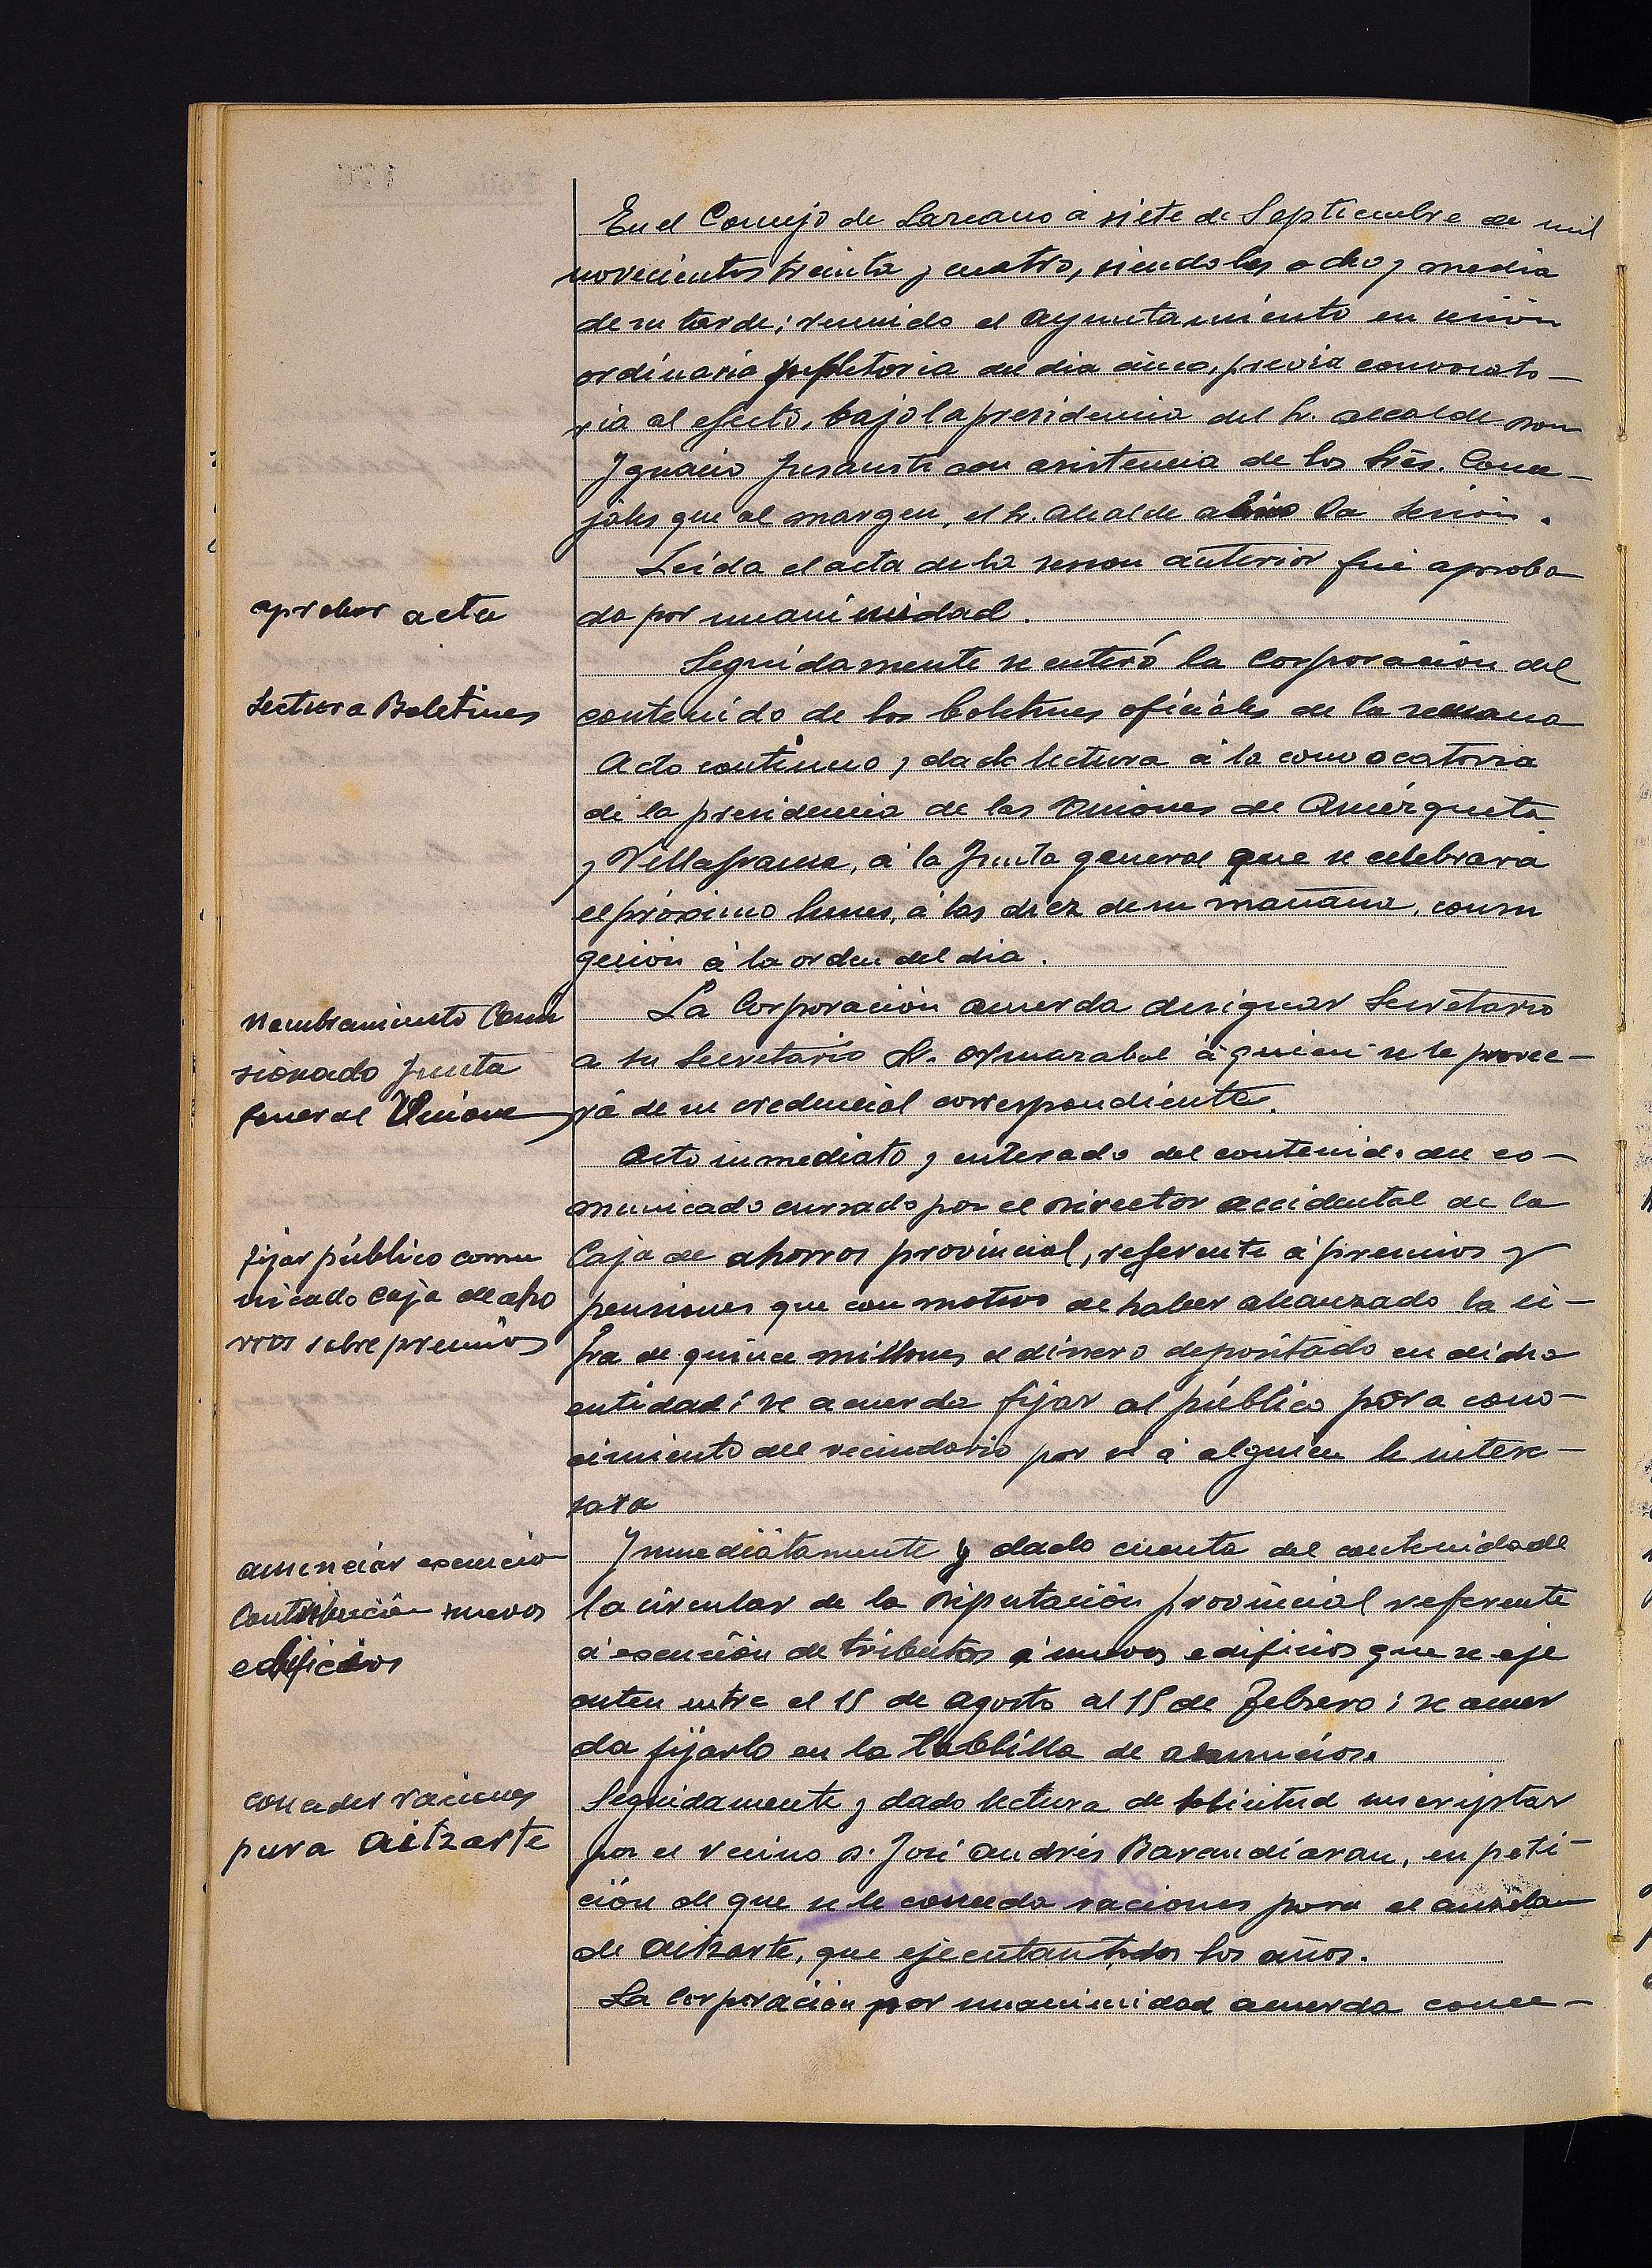 En el Concejo de Lazcano á siete de Septiembre de mil
novecientos treinta y cuatro, siendo las ocho y media
de su tarde; reunido el ayuntamiento en sesión
ordinaria supletoria del dia cinco, previa convocato-
ria al efecto, bajo la presidencia del Sr. alcalde Don
Ignacio con asistencia de los Srés. Conce-
jales que al margen, el Sr. Alcalde abrió la sesión.
Leída el acta de la sesion anterior fué aproba
aprobar acta
da por unanimidad.
Seguidamente se enteró la Corporación del
Lectura Boletines
contenido de los boletines oficiales de la semana
Acto continuo y dada lectura á la convocatoria
de la presidencia de las Uniones de Amézqueta
y Villafranca, á la Junta general que se celebrara
el próximo lunes, á las diez de su mañana, con su
gesión á la orden del dia.
La Corporación acuerda designar Secretario
Nombramiento Comi
sionado Junta
General Uniones
a su Secretario Sr. Ormazabal á quien se le provee-
rá de su credencial correspondiente.
Acto inmediato y enterado del contenido del co-
municado cursado por el Director accidental de la
fijar público comu
nicado caja de aho
rros sobre premios
Caja de ahorros provincial, referente á premios y
pensiones que con motivo de haber alcanzado la ci-
fra de quince millones el dinero depositado en dicha
entidad; se acuerda fijar al público para cono-
cimiento del vecindario por si á alguien le intere-
sara
Inmediátamente y dado cuenta del contenido del
anunciar exencion
Contribución nuevos
edificios
la circular de la Diputación provincial referente
á exención de tributos á nuevos edificios que se eje
cuten entre el 15 de Agosto al 15 de Febrero; se acuer
da fijarlo en la tablilla de anuncios.
conceder raciones
para Aitzarte
Seguidamente y dado lectura de solicitud suscriptar
por el vecino D. José Andrés Barandiáran, en peti-
ción de que se le conceda raciones para el auzolan
de Aitzarte, que ejecutan todos los años.
La Corporación por unanimidad acuerda conce-